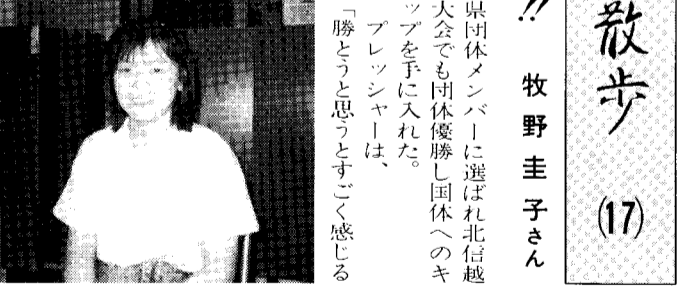 散歩
(17)
!!
牧野圭子さん
県団体メンバーに選ばれ北信越
大会でも団体優勝し国体へのキ
ップを手に入れた。
プレッシャーは、
「勝とうと思うとすごく感じる